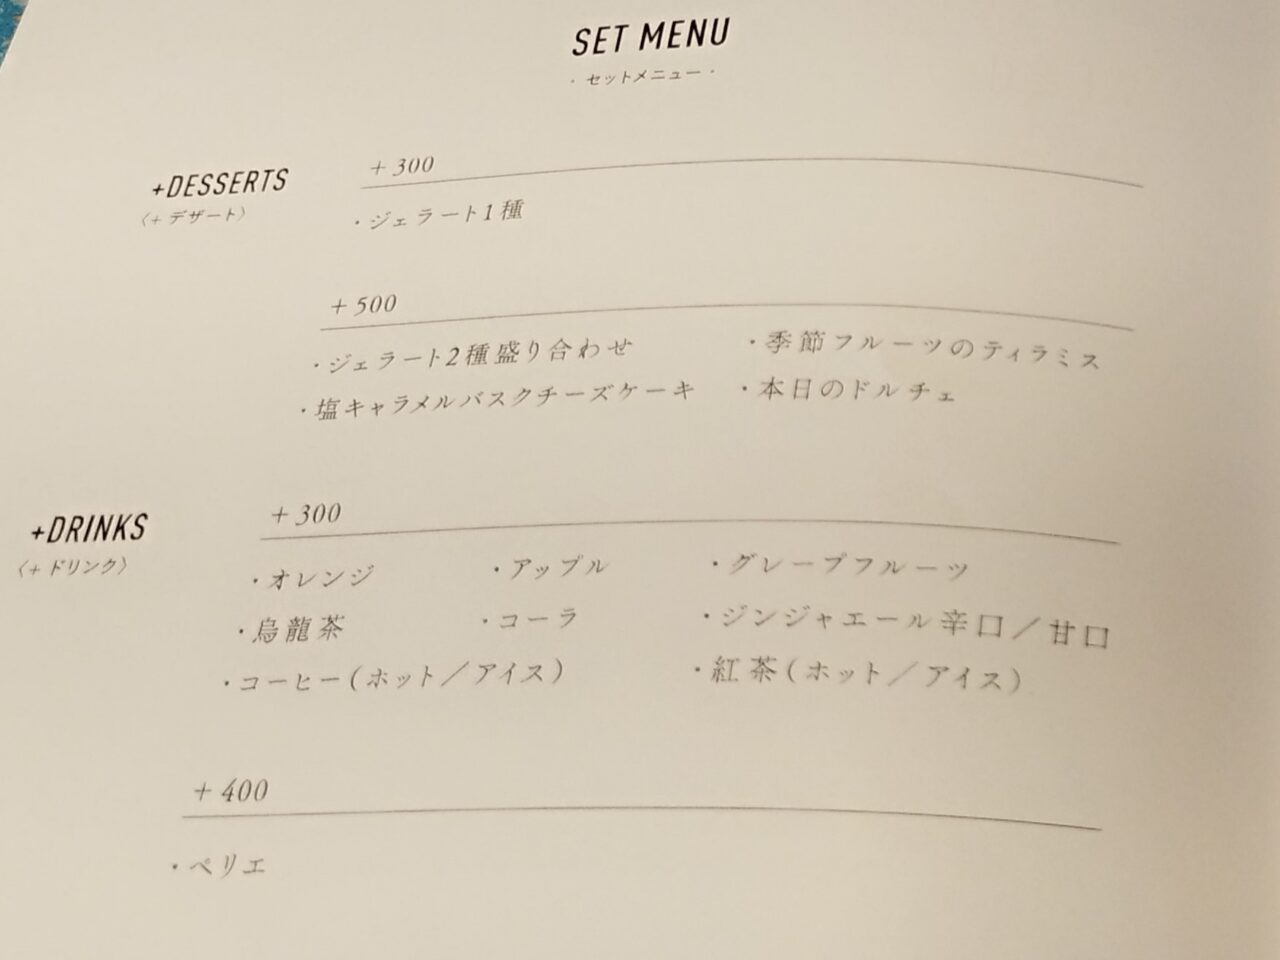 SET MENU
・セットメニュー・
+DESSERTS
〈+デザート〉
+300
・ジェラート1種
+500
・ジェラート2種盛り合わせ ・季節フルーツのティラミス
・塩キャラメルバスクチーズケーキ ・本日のドルチェ
+DRINKS
〈+ドリンク〉
+300
・オレンジ ・アップル ・グレープフルーツ
・烏龍茶 ・コーラ ・ジンジャエール辛口／甘口
・コーヒー(ホット／アイス) ・紅茶(ホット／アイス)
+400
・ペリエ